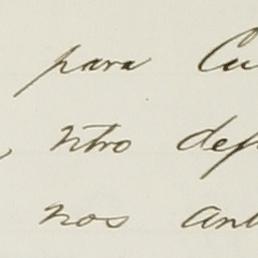 para Cu
ntro def
nos ant